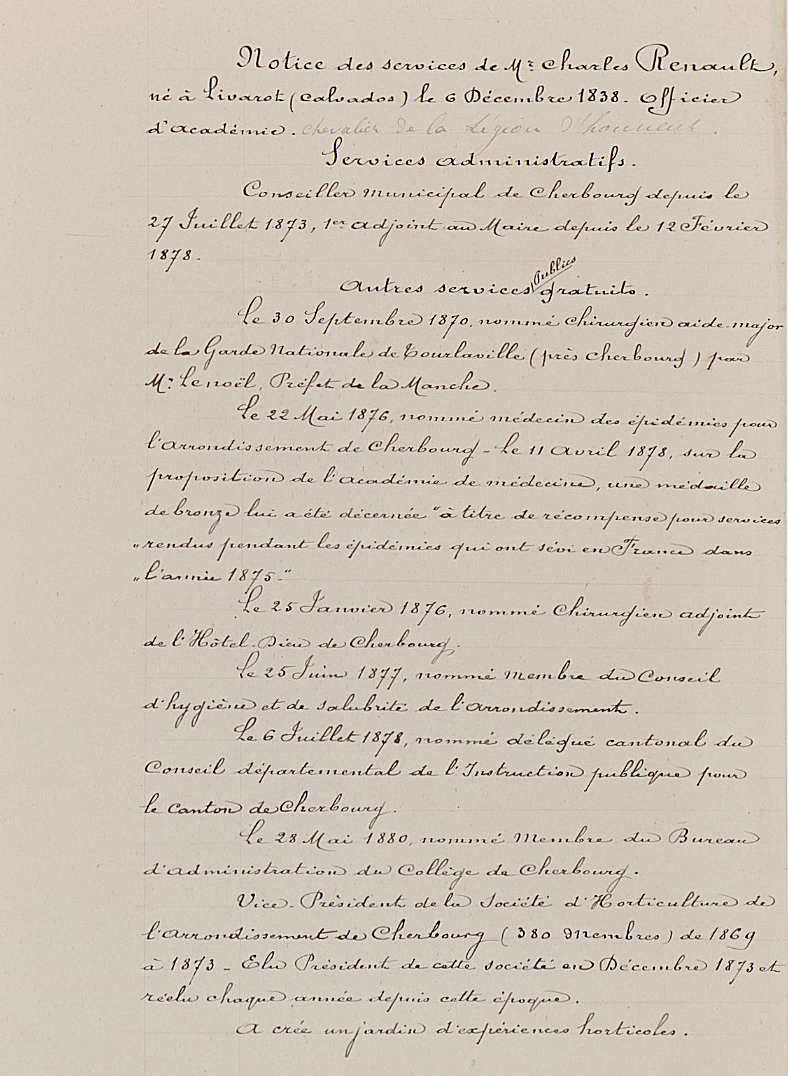 Notice des services de Mr Charles Renault,
né à Livarot (Calvados) le 6 Décembre 1838. Officier
d'académie. chevalier de la Légion d'honneur.
Services administratifs.
Conseiller municipal de Cherbourg depuis le
27 Juillet 1873, 1er adjoint au Maire depuis le 12 Février
1878.
Autres services publics gratuits.
Le 30 Septembre 1870, nommé chirurgien aide-major
de la Garde Nationale de Tourlaville (près Cherbourg) par
Mr Lenoël, Préfet de la Manche.
Le 22 Mai 1876, nommé médecin des épidémies pour
l'arrondissement de Cherbourg - Le 11 avril 1878, sur la
proposition de l'académie de médecine, une médaille
de bronze lui a été décernée "à titre de récompense pour services
"rendus pendant les épidémies qui ont sévi en France dans
"l'année 1875."
Le 25 Janvier 1876, nommé Chirurgien adjoint
de l'Hôtel-Dieu de Cherbourg.
Le 25 Juin 1877, nommé membre du Conseil
d'hygiène et de salubrité de l'arrondissement.
Le 6 Juillet 1878, nommé délégué cantonal du
Conseil départemental de l'Instruction publique pour
le canton de Cherbourg.
Le 28 Mai 1880, nommé Membre du Bureau
d'administration du Collège de Cherbourg.
Vice-Président de la Société d'Horticulture de
l'arrondissement de Cherbourg (380 membres) de 1869
à 1873 - Elu Président de cette société en Décembre 1873 et
réélu chaque année depuis cette époque.
A crée un jardin d'expériences horticoles.